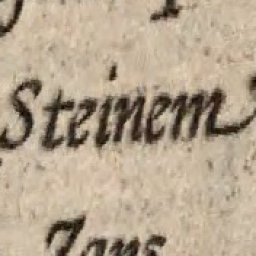 Steinem
Zans